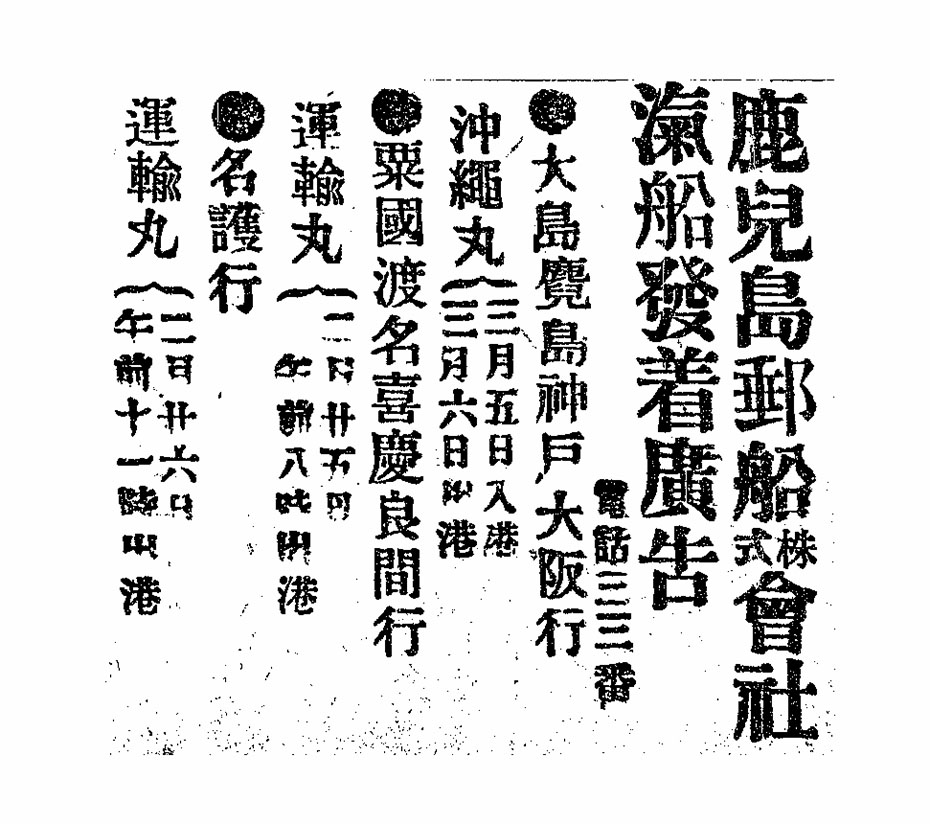 鹿兒島郵船株式會社
滊船發着廣告
電話三三番
●大島麑島神戶大阪行
沖繩丸
三月五日入港
三月六日出港
●粟國渡名喜慶良間行
運輸丸
二月廿五日
午前八時出港
●名護行
運輸丸
二日廿六日
午前十一時出港